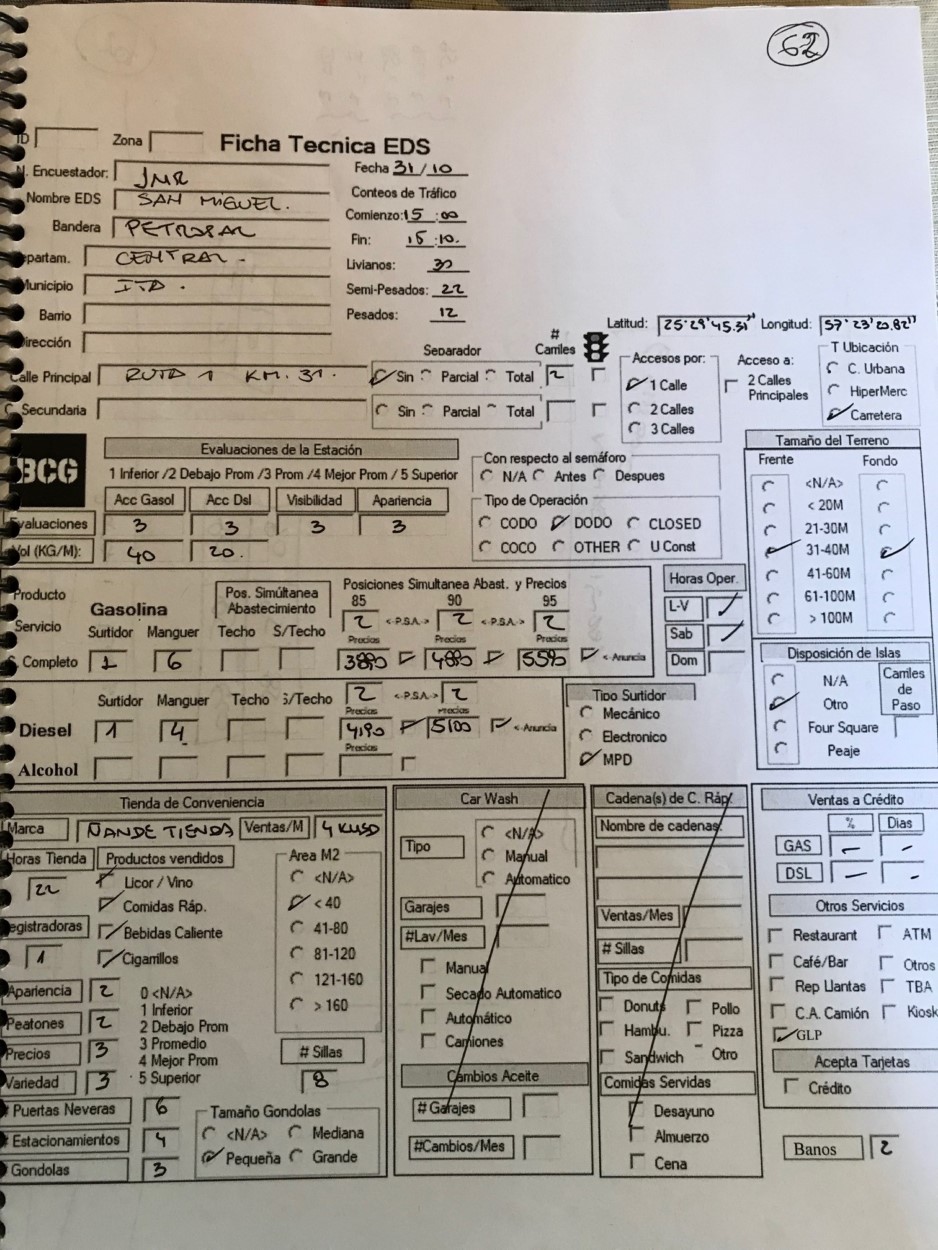 62
ID Zona Ficha Tecnica EDS
N. Encuestador: JMR Fecha 31/10
Nombre EDS SAN MIGUEL. Conteos de Tráfico
Bandera PETROSAR Comienzo: 15:00
Fin: 15:10.
epartam. CENTRAL - Livianos: 30
Municipio ITA. Semi-Pesados: 22
Barrio Pesados: 12
Dirección Latitud: 25°29'45.31" Longitud: 57°23'20.82"
Separador # Carriles Accesos por: Acceso a: T Ubicación
Calle Principal RUTA 1 KM. 31. Sin Parcial Total 2 1 Calle 2 Calles Principales C. Urbana
HiperMerc
C. Secundaria Sin Parcial Total 2 Calles Carretera
3 Calles
BCG Evaluaciones de la Estación Con respecto al semáforo Tamaño del Terreno
1 Inferior /2 Debajo Prom /3 Prom /4 Mejor Prom / 5 Superior N/A Antes Despues Frente Fondo
Acc Gasol Acc Dsl Visibilidad Apariencia Tipo de Operación <N/A>
Evaluaciones 3 3 3 3 CODO DODO CLOSED < 20M
Vol (KG/M): 40 20. COCO OTHER U Const 21-30M
31-40M
41-60M
61-100M
> 100M
Producto Pos. Simúltánea Abastecimiento Posiciones Simultanea Abast. y Precios Horas Oper.
Servicio Gasolina 85 90 95 L-V
2 <-P.S.A.-> 2 <-P.S.A.-> 2 Sab
Surtidor Manguer Techo S/Techo Precios Precios Precios Dom
S. Completo 1 6 3890 4890 5590 <-Anuncia
Disposición de Islas
N/A Carriles de Paso
Otro
Four Square
Peaje
Surtidor Manguer Techo S/Techo 2 <-P.S.A.-> 2 Tipo Surtidor
Precios Precios Mecánico
Diesel 1 4 4190 5100 <-Anuncia Electronico
Precios MPD
Alcohol
Tienda de Conveniencia Car Wash Cadena(s) de C. Ráp. Ventas a Crédito
Marca ÑANDE TIENDA Ventas/M Tipo <N/A> Nombre de cadenas: % Dias
Horas Tienda Productos vendidos Area M2 Manual GAS - -
22 Licor / Vino <N/A> Automatico DSL - -
Comidas Ráp. < 40 Garajes Ventas/Mes Otros Servicios
Registradoras Bebidas Caliente 41-80 #Lav/Mes # Sillas Restaurant ATM
1 Cigarrillos 81-120 Manual Tipo de Comidas Café/Bar Otros
Apariencia 2 0 <N/A> 121-160 Secado Automatico Donuts Pollo Rep Llantas TBA
1 Inferior > 160 Automático Hambu. Pizza C.A. Camión Kiosk
Peatones 2 2 Debajo Prom Camiones Sandwich Otro GLP
Precios 3 3 Promedio # Sillas Cambios Aceite Comidas Servidas Acepta Tarjetas
4 Mejor Prom
Variedad 3 5 Superior 8 # Garajes Desayuno Crédito
# Puertas Neveras 6 Tamaño Gondolas Almuerzo
# Estacionamientos 4 <N/A> Mediana #Cambios/Mes Cena Banos 2
# Gondolas 3 Pequeña Grande